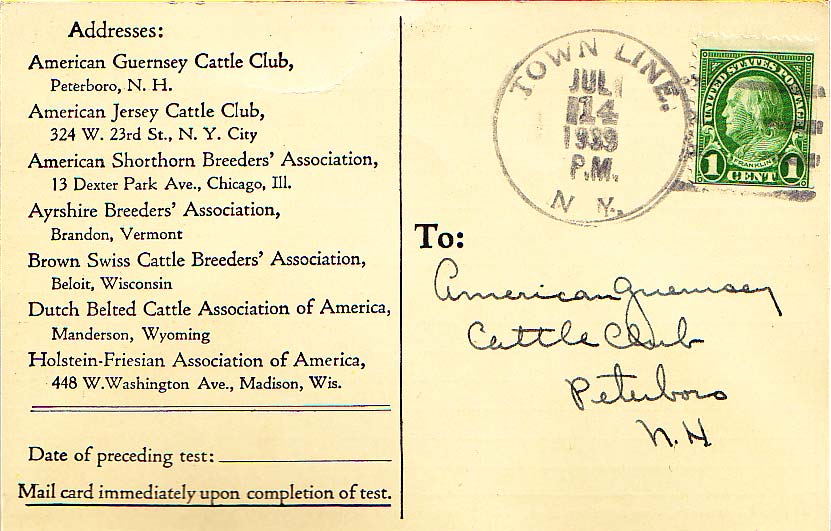 Addresses:
American Guernsey Cattle Club,
Peterboro, N. H.
American Jersey Cattle Club,
324 W. 23rd St., N. Y. City
American Shorthorn Breeders' Association,
13 Dexter Park Ave., Chicago, Ill.
Ayrshire Breeders' Association,
Brandon, Vermont
Brown Swiss Cattle Breeders' Association,
Beloit, Wisconsin
Dutch Belted Cattle Association of America,
Manderson, Wyoming
Holstein-Friesian Association of America,
448 W.Washington Ave., Madison, Wis.
Date of preceding test:
Mail card immediately upon completion of test.
TOWN LINE.
JUL
14
1939
P.M.
N. Y.
UNITED STATES POSTAGE
FRANKLIN
1 CENT 1
To:
American Guernsey
Cattle Club
Peterboro
N.H